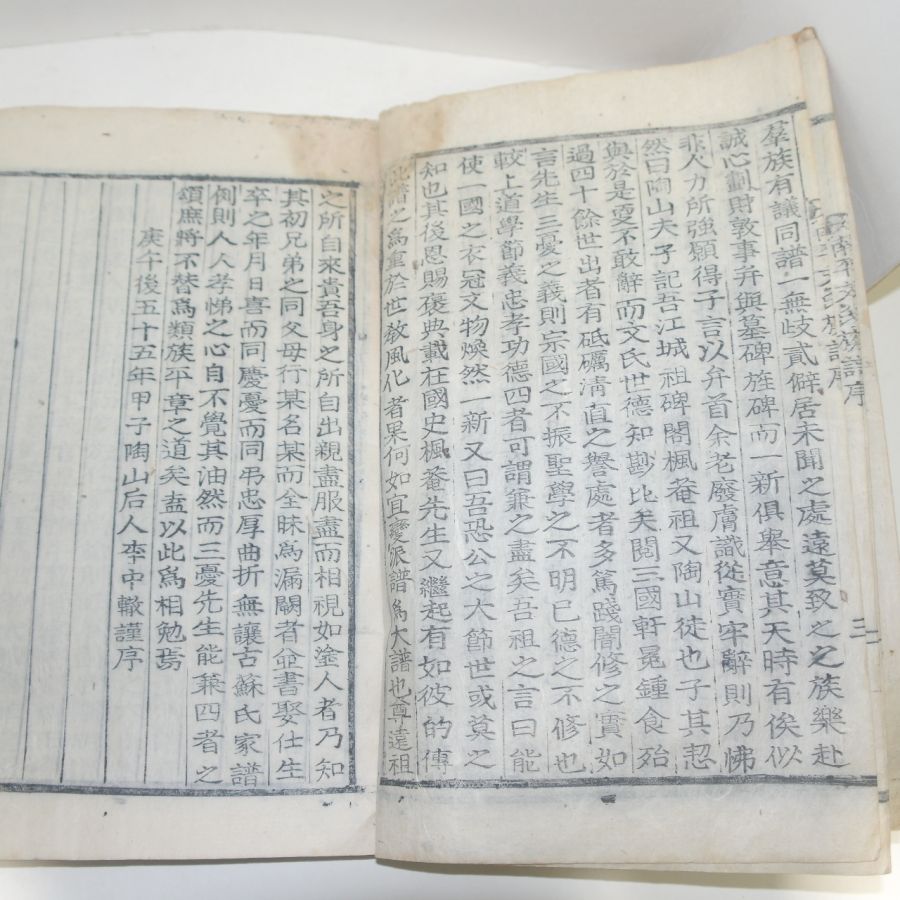 羣族有議同譜一無歧貳僻居未聞之處遠莫致之之族樂赴
誠心劃財敦事弁與墓碑旌碑而一新俱舉意其天時有俟似
非人力所強願得子言以弁首余老廢膚識從實牢辭則乃怫
然曰陶山夫子記吾江城祖碑閣楓菴祖又陶山徒也子其恝
與於是亟不敢辭而文氏世德知尠比矣閱三國軒冕鍾食殆
過四十餘世出者有砥礪淸直之譽處者多篤踐闇修之實如
言先生三憂之義則宗國之不振聖學之不明已德之不修也
較上道學節義忠孝功德四者可謂兼之盡矣吾祖之言曰能
使一國之衣冠文物煥然一新又曰吾恐公之大節世或莫之
知也其後恩賜褒典載在國史楓菴先生又繼起有如彼的傳
此譜之爲重於世敎風化者果何如宜變派譜爲大譜也尊遠祖
之所自來貴吾身之所自出親盡服盡而相視如塗人者乃知
其初兄弟之同父母行某名某而全昧爲漏闕者竝書娶仕生
卒之年月日喜而同慶憂而同弔忠厚曲折無讓古蘇氏家譜
例則人人孝悌之心自不覺其油然而三憂先生能兼四者之
頌庶將不替爲類族平章之道矣盍以此爲相勉焉
庚午後五十五年甲子陶山后人李中轍謹序